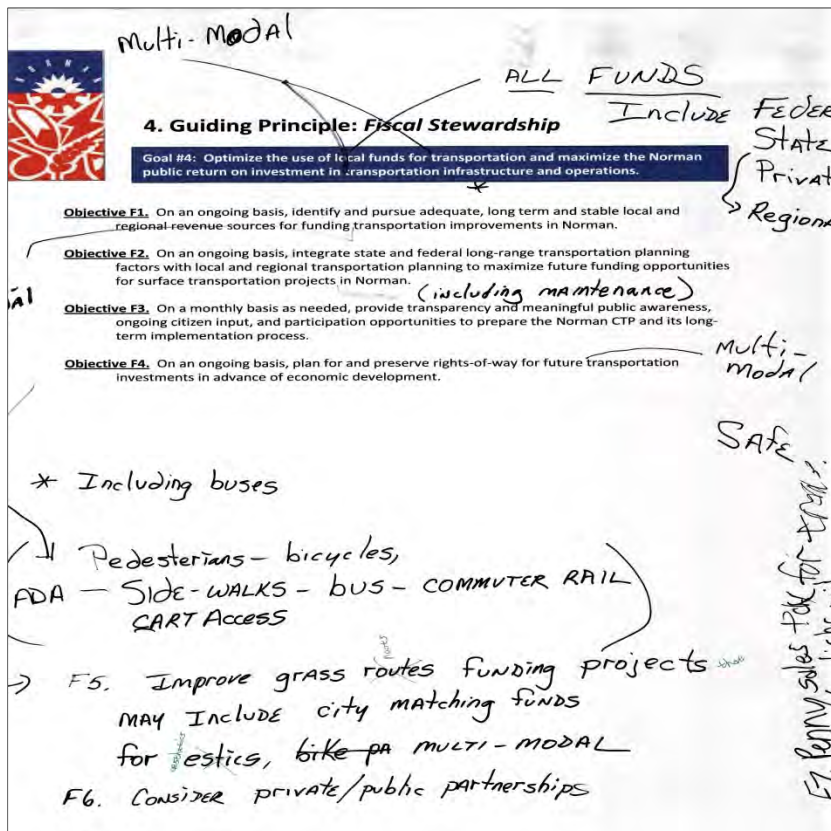 Multi-Modal
ALL FUNDS
Include FEDER
State
Privat
Regiona
NORMAN
4. Guiding Principle: Fiscal Stewardship
Goal #4: Optimize the use of local funds for transportation and maximize the Norman
public return on investment in transportation infrastructure and operations.
*
Objective F1. On an ongoing basis, identify and pursue adequate, long term and stable local and
regional revenue sources for funding transportation improvements in Norman.
Objective F2. On an ongoing basis, integrate state and federal long-range transportation planning
factors with local and regional transportation planning to maximize future funding opportunities
for surface transportation projects in Norman.
(including maintenance)
al
Objective F3. On a monthly basis as needed, provide transparency and meaningful public awareness,
ongoing citizen input, and participation opportunities to prepare the Norman CTP and its long-
term implementation process.
Objective F4. On an ongoing basis, plan for and preserve rights-of-way for future transportation
investments in advance of economic development.
Multi-
Modal
SAfe
* Including buses
Pedesterians - bicycles,
ADA - SIDE-WALKS - bus - COMMUTER RAIL
CART Access
F5. Improve grass routes roots funding projects that
MAY Include city matching funds
for estics, aesthetics bike pa MULTI-MODAL
F6. Consider private/public partnerships
F7. Penny sales tax for